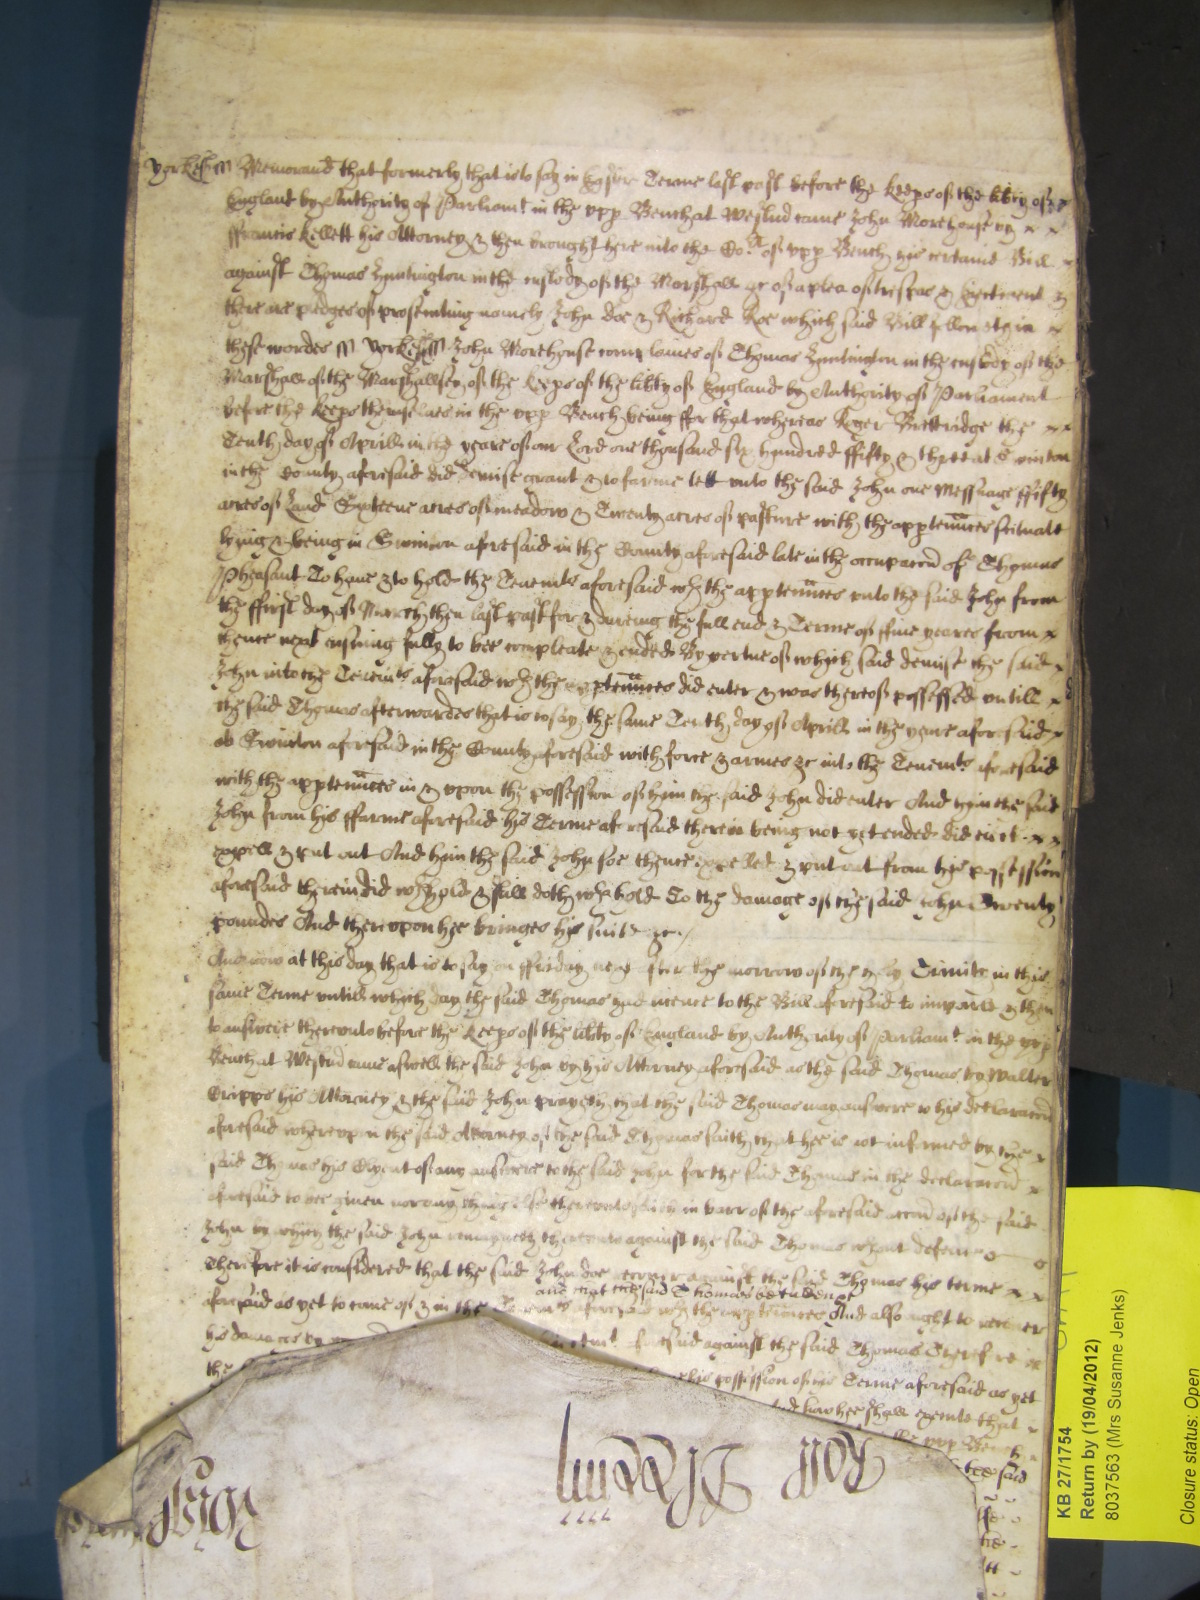 Yorkess Memorand that formerly that is to say in Easter Terme last past before the Keeps of the lib̃ty of
England by Authority of Parliamt in the upp Bench at Westm̃ came John Morehouse by
ffrancis Kellett his Attorney & then brought here into the Cort of upp Bench his certaine Bill
against Thomas Huntington in the custody of the Marshall &c of a plea of trespas & Eiectment &
there are pledges of prosecuting namely John Doe & Richard Roe which said Bill followeth in
these wordes ss Yorkess John Morehouse complaines of Thomas Huntington in the custody of the
Marshall of the Marshallsey of the Keeps of the lib̃ty of England by Authority of Parliament
before the Keeps themselves in the upp Bench being ffor that whereas Roger Brettridge the
Tenth day of Aprill in the yeare of our Lord one thousand six hundred ffifty & three at Swinton
in the County aforesaid did demise grant & to farme lett unto the said John one Messuage ffifty
acres of Land Sixteene acres of meadow & Twenty acres of pasture with the apptennces scituate
lying & being in Swinton aforesaid in the County aforesaid late in the occupacon of Thomas
Pheasant To have & to hold the Tenemts aforesaid wth the apptennces unto the said John from
the ffirst day of March then last past for & dureing the full end & Terme of ffive yeares from
thence next ensuing fully to bee compleate & ended By vertue of which said demise the said
John into the Tenemts aforesaid wth the apptennces did enter & was thereof possessed untill
the said Thomas afterwardes that is to say the same Tenth day of Aprill in the yeare aforesaid
at Swinton aforesaid in the County aforesaid with force & armes &c into the Tenemts aforesaid
with the apptennces in & upon the possession of him the said John did enter And him the said
John from his ffarme aforesaid his Terme aforesaid therein being not yet ended did eiect
expell & put out And him the said John soe thence expelled & put out from his possession
aforesaid therein did wthhold & still doth wthhold To the damage of the said John Twenty
poundes And thereupon hee bringes his suite &c
And now at this day that is to say on ffriday next after the morrow of the holy Trinite in this
same Terme untill which day the said Thomas had licence to the Bill aforesaid to imparle & then
to answere thereunto before the Keeps of the lib̃ty of England by Authority of Parliamt in the upp
Bench at Westm̃ came aswell the said John by his Attorney aforesaid as the said Thomas by Walter
Cripps his Attorney & the said John prayeth that the said Thomas may answere to his declaracon
aforesaid whereupon the said Attorney of the said Thomas saith that hee is not informed by the
said Thomas his Clyent of any answere to the said John for the said Thomas in the declaracon
aforesaid to bee given nor any thing else thereunto saith in barr of the aforesaid accon of the said
John by which the said John remayneth thereunto against the said Thomas wthout defence
Therefore it is considered that the said John doe recover against the said Thomas his terme
and that the said Thomas
aforesaid as yet to come of & in the Tenemts aforesaid wth the apptennces And also ought to recover
his damages by aforesaid against the said Thomas Therefore
the his possession of his Terme aforesaid as yet
and how hee shall execute that
the upp Bench
the said
Roll
KB 27/1754
Return by (19/04/2012)
8037563 (Mrs Susanne Jenks)
Closure status: Open